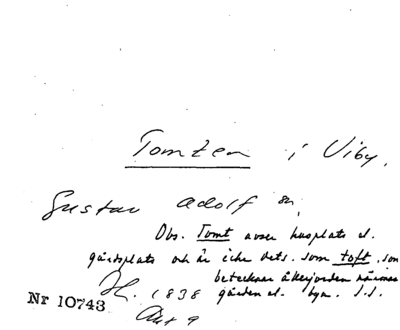 Tomten i Viby.
Gustav Adolf sn.
Obs. Tomt avser husplats el.
gårdsplats och är icke dets. som toft, som
betecknar åkerjorden närmast
gården el. byn. J.S.
H. 1838
Nr 10743
Akt 9